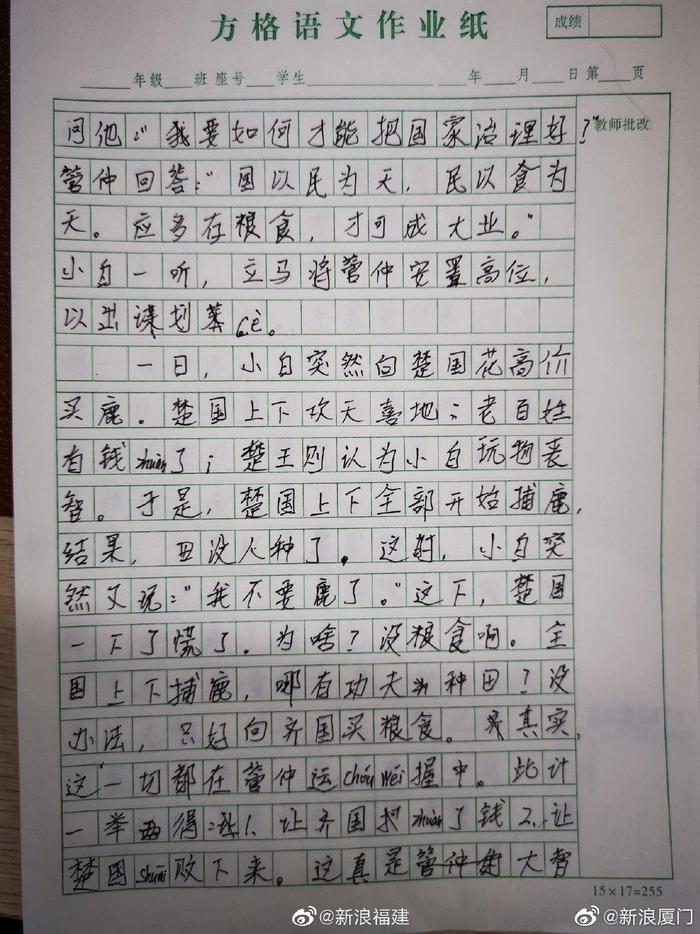 方格语文作业纸
成绩
年级 班 座号 学生 年 月 日 第 页
教师批改
问他:"我要如何才能把国家治理好?"
管仲回答:"国以民为天,民以食为
天。应多存粮食,才可成大业。"
小白一听,立马将管仲安置高位,
以出谋划策cè。
一日,小白突然向楚国花高价
买鹿。楚国上下欢天喜地;老百姓
有钱zhuàn了;楚王则认为小白玩物丧
智。于是,楚国上下全部开始捕鹿,
结果,田没人种了。这时,小白突
然又说:"我不要鹿了。"这下,楚国
一下了慌了。为啥?没粮食啊。全
国上下捕鹿,哪有功夫种田?没
办法,只好向齐国买粮食。其实,
这一切都在管仲运chóu wéi握中。此计
一举两得:1、让齐国zhuàn了钱2、让
楚国shuāi败下来。这真是管仲大智
15×17=255
@新浪福建
@新浪厦门